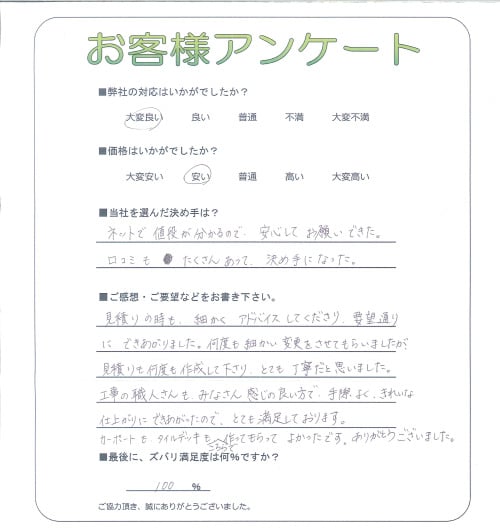 お客様アンケート
■弊社の対応はいかがでしたか？
大変良い 良い 普通 不満 大変不満
■価格はいかがでしたか？
大変安い 安い 普通 高い 大変高い
■当社を選んだ決め手は？
ネットで値段が分かるので、安心してお願いできた。
口コミもたくさんあって、決め手になった。
■ご感想・ご要望などをお書き下さい。
見積りの時も、細かくアドバイスしてくださり、要望通り
にできあがりました。何度も細かい変更をさせてもらいましたが
見積りも何度も作成して下さり、とても丁寧だと思いました。
工事の職人さんも、みなさん感じの良い方で、手際よく、きれいな
仕上がりにできあがったので、とても満足しております。
カーポートも、タイルデッキも、こちらで作ってもらってよかったです。ありがとうございました。
■最後に、ズバリ満足度は何%ですか？
100 %
ご協力頂き、誠にありがとうございました。